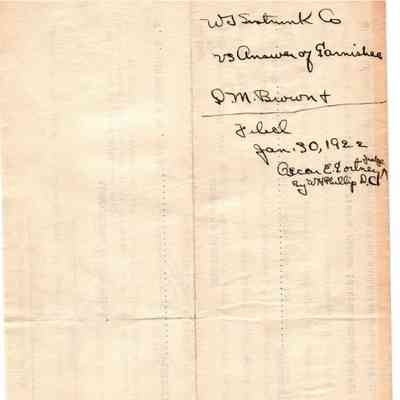 W T Sistrunk Co
vs Answer of Garnishee
D. M. Brown +
Filed
Jan. 30, 1922
Oscar E.
By W H Phillip D.C.